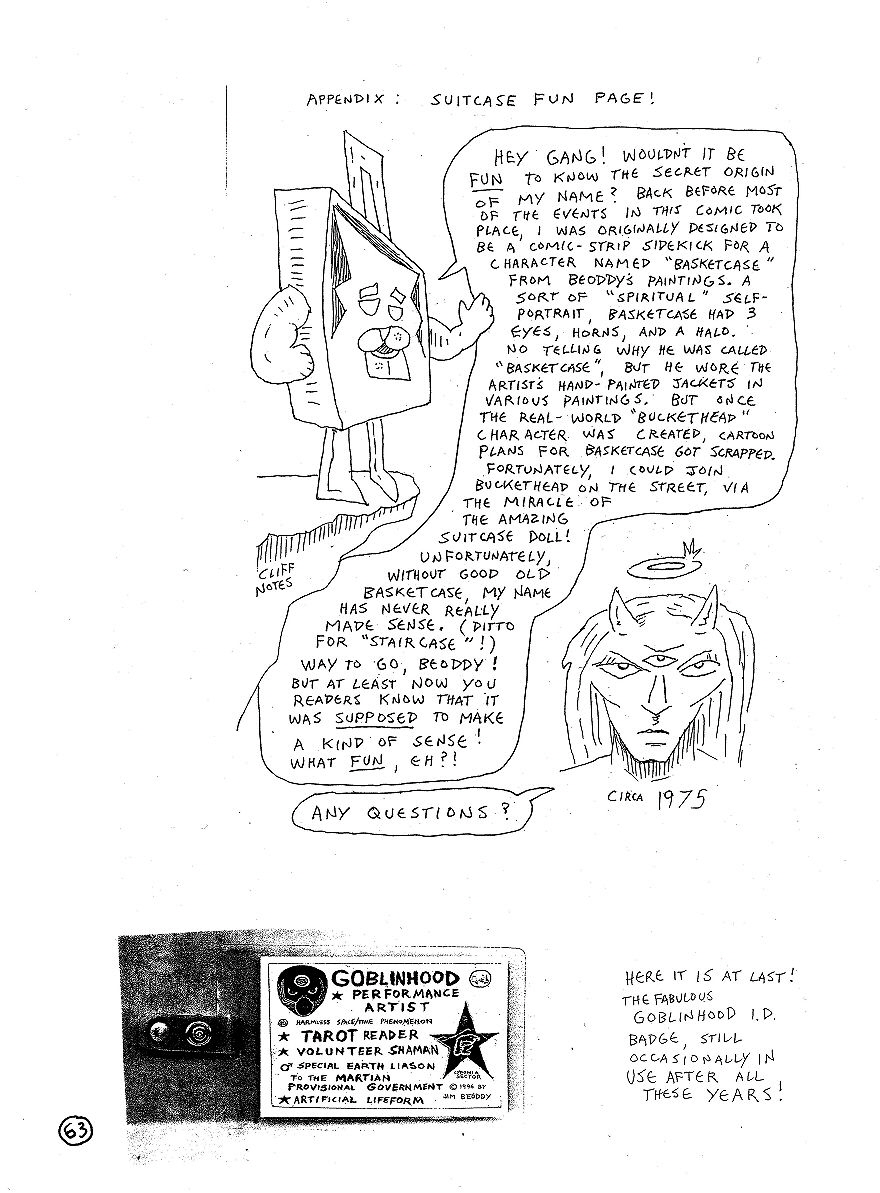 APPENDIX: SUITCASE FUN PAGE!
HEY GANG! WOULDN'T IT BE
FUN TO KNOW THE SECRET ORIGIN
OF MY NAME? BACK BEFORE MOST
OF THE EVENTS IN THIS COMIC TOOK
PLACE, I WAS ORIGINALLY DESIGNED TO
BE A COMIC-STRIP SIDEKICK FOR A
CHARACTER NAMED "BASKETCASE"
FROM BEODDY'S PAINTINGS. A
SORT OF "SPIRITUAL" SELF-
PORTRAIT, BASKETCASE HAD 3
EYES, HORNS, AND A HALO.
NO TELLING WHY HE WAS CALLED
"BASKETCASE", BUT HE WORE THE
ARTIST'S HAND-PAINTED JACKETS IN
VARIOUS PAINTINGS. BUT ONCE
THE REAL-WORLD "BUCKETHEAD"
CHARACTER WAS CREATED, CARTOON
PLANS FOR BASKETCASE GOT SCRAPPED.
FORTUNATELY, I COULD JOIN
BUCKETHEAD ON THE STREET, VIA
THE MIRACLE OF
THE AMAZING
SUITCASE DOLL!
UNFORTUNATELY,
WITHOUT GOOD OLD
BASKETCASE, MY NAME
HAS NEVER REALLY
MADE SENSE. (DITTO
FOR "STAIRCASE"!)
WAY TO GO, BEODDY!
BUT AT LEAST NOW YOU
READERS KNOW THAT IT
WAS SUPPOSED TO MAKE
A KIND OF SENSE!
WHAT FUN, EH?!
CLIFF
NOTES
ANY QUESTIONS?
CIRCA 1975
GOBLINHOOD
★ PERFORMANCE
ARTIST
HARMLESS SPACE/TIME PHENOMENON
★ TAROT READER
★ VOLUNTEER SHAMAN
♂ SPECIAL EARTH LIASON
TO THE MARTIAN
PROVISIONAL GOVERNMENT
★ ARTIFICIAL LIFEFORM
CYDONIA
SECTOR
© 1996 BY
JIM BEODDY
HERE IT IS AT LAST!
THE FABULOUS
GOBLINHOOD I.D.
BADGE, STILL
OCCASIONALLY IN
USE AFTER ALL
THESE YEARS!
63